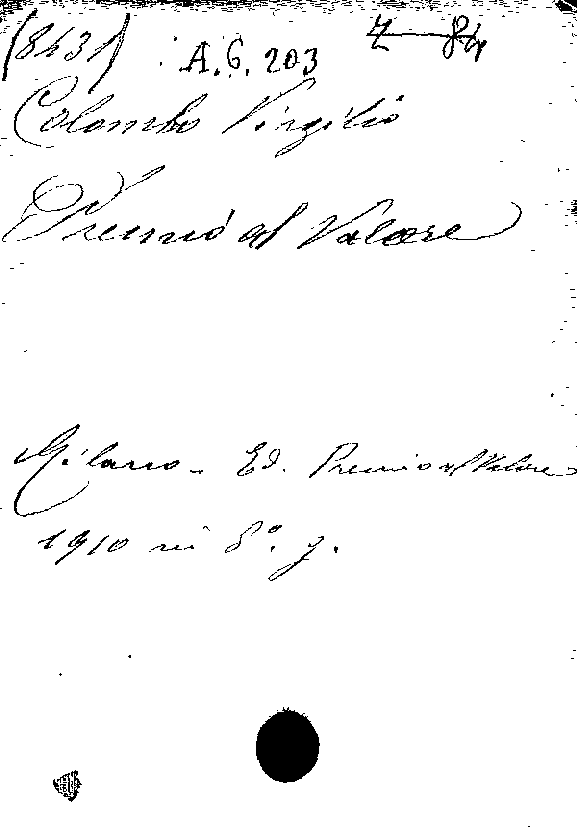 (8431) A. G. 203 Z 84
Colombo Virgilio
Premio al Valore
Milano - Ed. Premio al Valore
1910 in 8º. g.